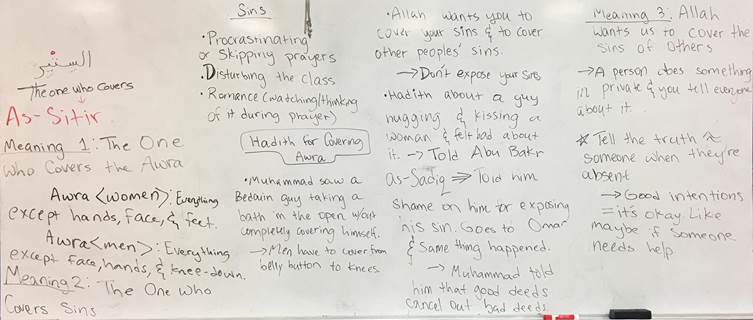 الستير
The one who covers
As-Sitir
Meaning 1: The One
Who Covers the Awra
Awra <women>: Everything
except hands, face, & feet.
Awra <men>: Everything
except face, hands, & knee-down.
Meaning 2: The One Who
Covers Sins
Sins
• Procrastinating
or Skipping prayers
• Disturbing the class
• Romance (watching/thinking
of it during prayer)
Hadith for Covering
Awra
• Muhammad saw a
Bedouin guy taking a
bath in the open w/out
completely covering himself.
→ Men have to cover from
belly button to knees.
• Allah wants you to
cover your sins & to cover
other peoples' sins.
→ Don't expose your sins
• Hadith about a guy
hugging & kissing a
woman & felt bad about
it. → Told Abu Bakr
as-Sadiq ⇒ Told him
shame on him for exposing
his sin. Goes to Omar
& same thing happened.
→ Muhammad told
him that good deeds
cancel out bad deeds
Meaning 3: Allah
wants us to cover the
sins of others
→ A person does something
in private & you tell everyone
about it.
* Tell the truth
someone when they're
absent
→ Good intentions
= it's okay like
maybe if someone
needs help